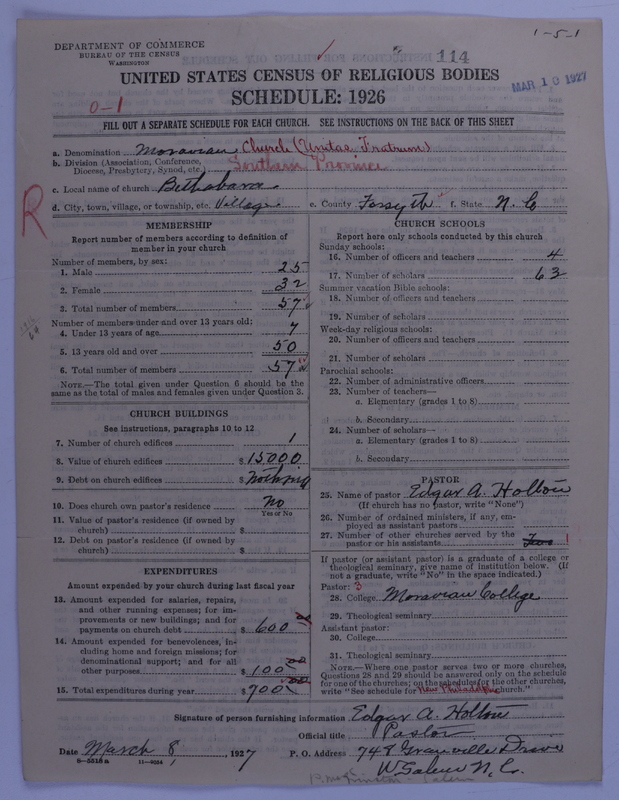 1-5-1
DEPARTMENT OF COMMERCE
BUREAU OF THE CENSUS
WASHINGTON
114
MAR 10 1927
UNITED STATES CENSUS OF RELIGIOUS BODIES
SCHEDULE: 1926
0-1
FILL OUT A SEPARATE SCHEDULE FOR EACH CHURCH. SEE INSTRUCTIONS ON THE BACK OF THIS SHEET
a. Denomination Moravian Church (Unitas Fratrum)
b. Division (Association, Conference, Diocese, Presbytery, Synod, etc.) Southern Province
c. Local name of church Bethabara
d. City, town, village, or township, etc. Village e. County Forsyth f. State N. C
R
MEMBERSHIP
Report number of members according to definition of
member in your church
Number of members, by sex:
1. Male 25
2. Female 32
3. Total number of members 57
Number of members under and over 13 years old:
4. Under 13 years of age 7
5. 13 years old and over 50
6. Total number of members 57
NOTE.—The total given under Question 6 should be the
same as the total of males and females given under Question 3.
CHURCH BUILDINGS
See instructions, paragraphs 10 to 12
7. Number of church edifices 1
8. Value of church edifices $15000
9. Debt on church edifices $ Nothing
10. Does church own pastor's residence No
Yes or No
11. Value of pastor's residence (if owned by
church) $
12. Debt on pastor's residence (if owned by
church) $
EXPENDITURES
Amount expended by your church during last fiscal year
13. Amount expended for salaries, repairs,
and other running expenses; for im-
provements or new buildings; and for
payments on church debt $ 600 00
14. Amount expended for benevolences, in-
cluding home and foreign missions; for
denominational support; and for all
other purposes $ 100 00
15. Total expenditures during year $ 700 00
CHURCH SCHOOLS
Report here only schools conducted by this church
Sunday schools:
16. Number of officers and teachers 4
17. Number of scholars 63
Summer vacation Bible schools:
18. Number of officers and teachers
19. Number of scholars
Week-day religious schools:
20. Number of officers and teachers
21. Number of scholars
Parochial schools:
22. Number of administrative officers
23. Number of teachers—
a. Elementary (grades 1 to 8)
b. Secondary
24. Number of scholars—
a. Elementary (grades 1 to 8)
b. Secondary
PASTOR
25. Name of pastor Edgar A. Holton
(If church has no pastor, write "None")
26. Number of ordained ministers, if any, em-
ployed as assistant pastors
27. Number of other churches served by the
pastor or his assistants Two 1
If pastor (or assistant pastor) is a graduate of a college or
theological seminary, give name of institution below. (If
not a graduate, write "No" in the space indicated.)
Pastor: 3
28. College Moravian College
29. Theological seminary
Assistant pastor:
30. College
31. Theological seminary
NOTE.—Where one pastor serves two or more churches,
Questions 28 and 29 should be answered only on the schedule
for one of the churches; on the schedules for the other churches,
write "See schedule for New Philadelphia church."
Signature of person furnishing information Edgar A. Holton
Official title Pastor
Date March 8, 1927 P. O. Address 748 Granville Drive
W Salem N. C.
8-5518a 11-9224